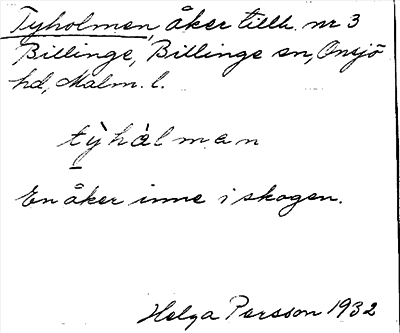 Tyholmen, åker tillh. nr 3
Billinge, Billinge sn, Onsjö
hd, Malm. l.
tỳhàlman
En åker inne i skogen.
Helga Persson 1932